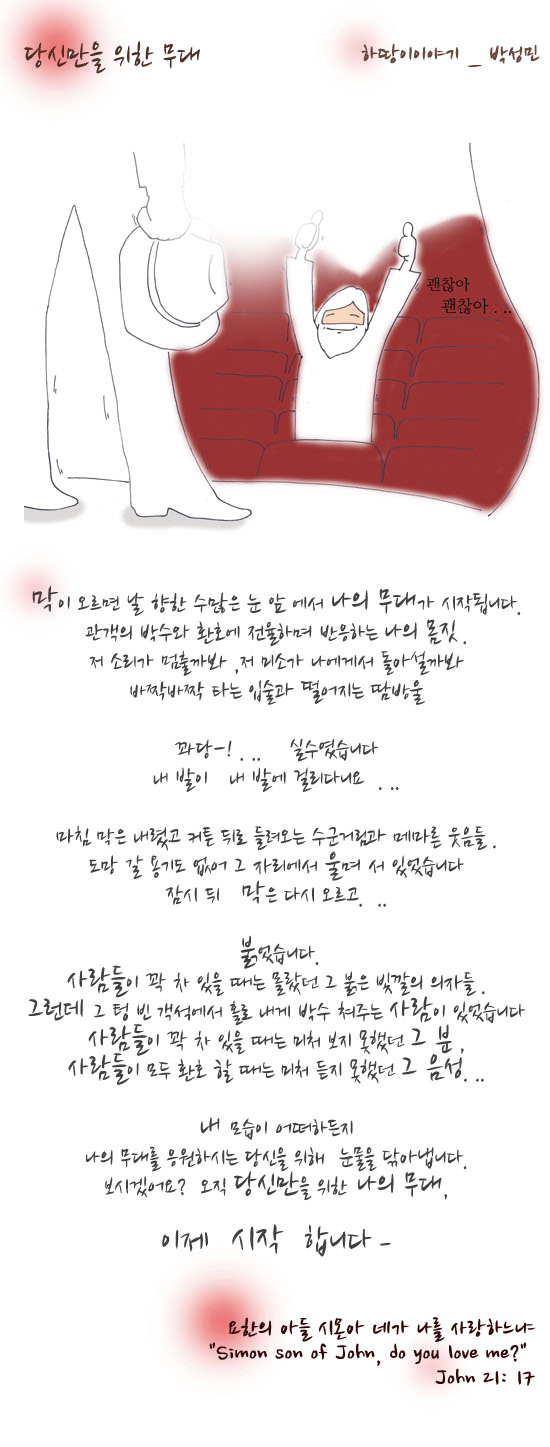 당신만을 위한 무대
하땅이이야기 _ 박성민
괜찮아
괜찮아 . ..
막이 오르면 날 향한 수많은 눈 앞 에서 나의 무대가 시작됩니다.
관객의 박수와 환호에 전율하며 반응하는 나의 몸짓.
저 소리가 멈출까봐 ,저 미소가 나에게서 돌아설까봐
바짝바짝 타는 입술과 떨어지는 땀방울
꽈당-! . .. 실수였습니다
내 발이 내 발에 걸리다니요 . ..
마침 막은 내렸고 커튼 뒤로 들려오는 수군거림과 메마른 웃음들.
도망 갈 용기도 없어 그 자리에서 울며 서 있었습니다
잠시 뒤 막은 다시 오르고. ..
붉었습니다.
사람들이 꽉 차 있을 때는 몰랐던 그 붉은 빛깔의 의자들.
그런데 그 텅 빈 객석에서 홀로 내게 박수 쳐주는 사람이 있었습니다
사람들이 꽉 차 있을 때는 미처 보지 못했던 그 분,
사람들이 모두 환호 할 때는 미처 듣지 못했던 그 음성. ..
내 모습이 어떠하든지
나의 무대를 응원하시는 당신을 위해 눈물을 닦아냅니다.
보시겠어요? 오직 당신만을 위한 나의 무대,
이제 시작 합니다 -
요한의 아들 시몬아 네가 나를 사랑하느냐
"Simon son of John, do you love me?"
John 21: 17